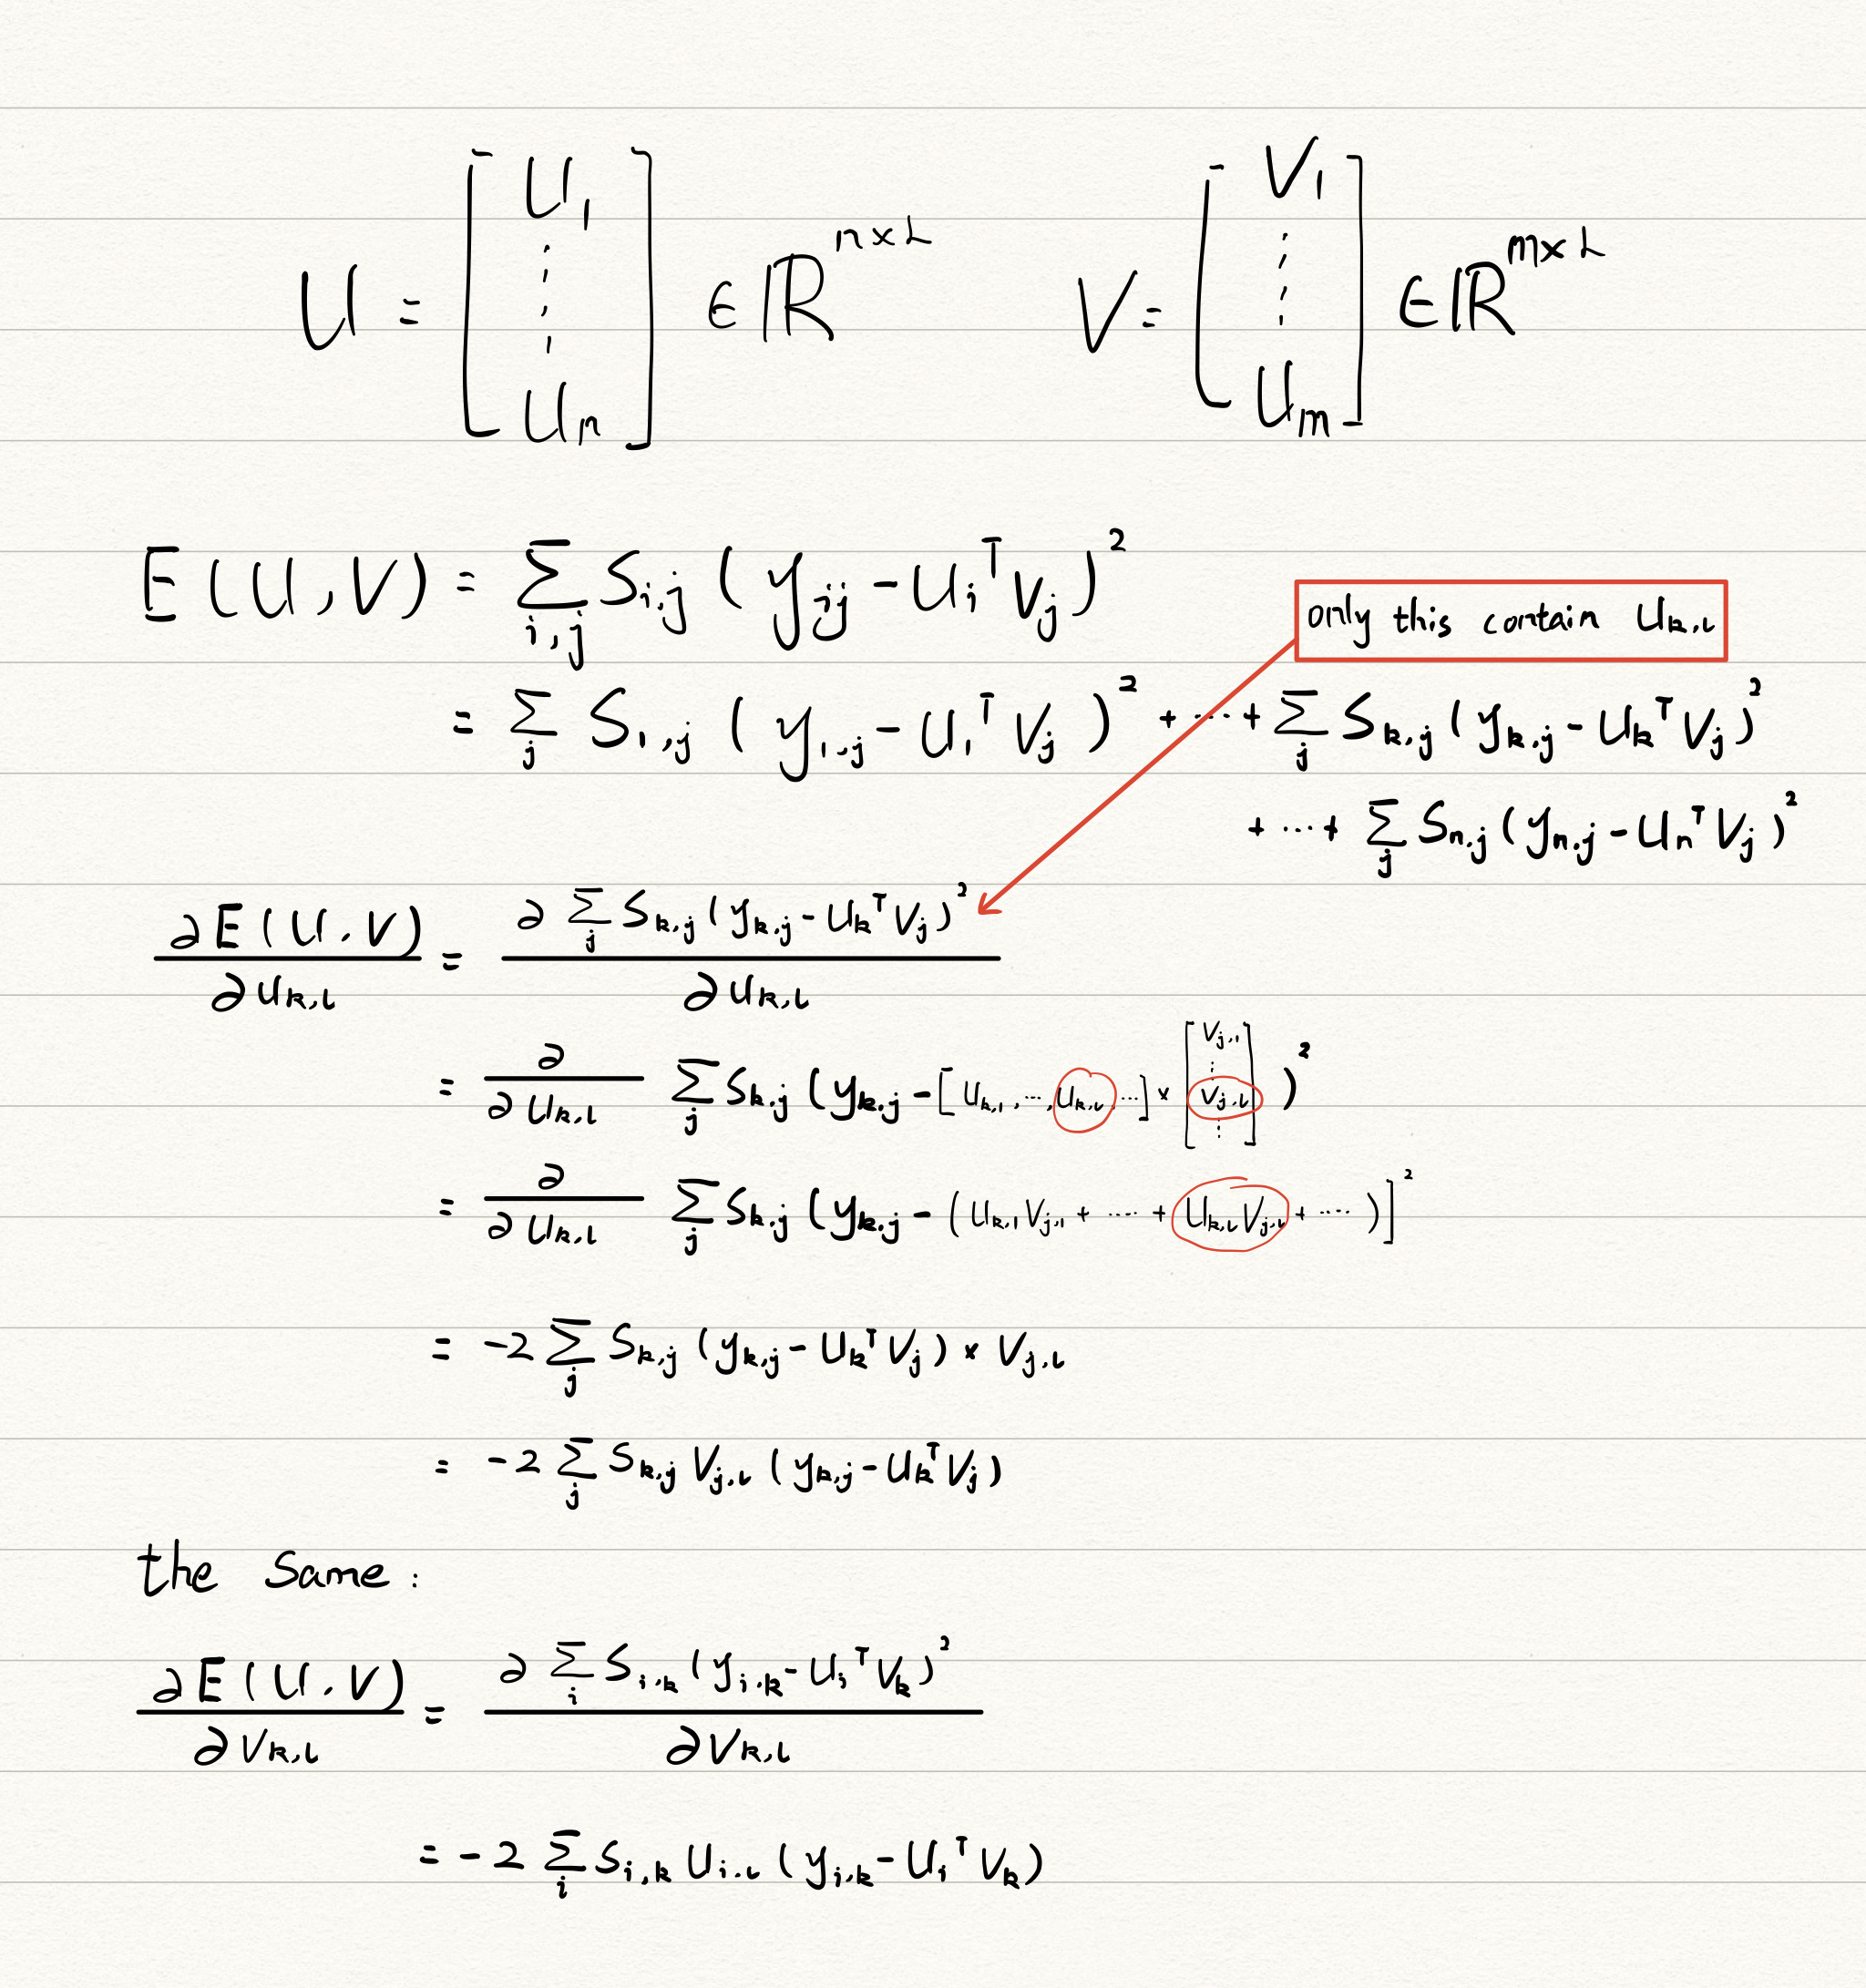 U = [U₁ ⋮ Uₙ] ∈ ℝ^{n×L}    V = [V₁ ⋮ Uₘ] ∈ ℝ^{m×L}
E(U,V) = ∑_{i,j} S_{i,j} (y_{jj} - U_i^T V_j)^2
only this contain U_{k,l}
= ∑_j S_{1,j} (y_{1,j} - U_1^T V_j)^2 + ⋯ + ∑_j S_{k,j} (y_{k,j} - U_k^T V_j)^2
+ ⋯ + ∑_j S_{n,j} (y_{n,j} - U_n^T V_j)^2
∂E(U,V)/∂U_{k,l} = ∂ ∑_j S_{k,j} (y_{k,j} - U_k^T V_j)^2 / ∂U_{k,l}
= ∂/∂U_{k,l} ∑_j S_{k,j} (y_{k,j} - [U_{k,1}, ⋯, U_{k,l}, ⋯] × [V_{j,1} ⋮ V_{j,l} ⋮])^2
= ∂/∂U_{k,l} ∑_j S_{k,j} (y_{k,j} - (U_{k,1} V_{j,1} + ⋯ + U_{k,l} V_{j,l} + ⋯)]^2
= -2 ∑_j S_{k,j} (y_{k,j} - U_k^T V_j) × V_{j,l}
= -2 ∑_j S_{k,j} V_{j,l} (y_{k,j} - U_k^T V_j)
the same:
∂E(U,V)/∂V_{k,l} = ∂ ∑_i S_{i,k} (y_{i,k} - U_i^T V_k)^2 / ∂V_{k,l}
= -2 ∑_i S_{i,k} U_{i,l} (y_{i,k} - U_i^T V_k)